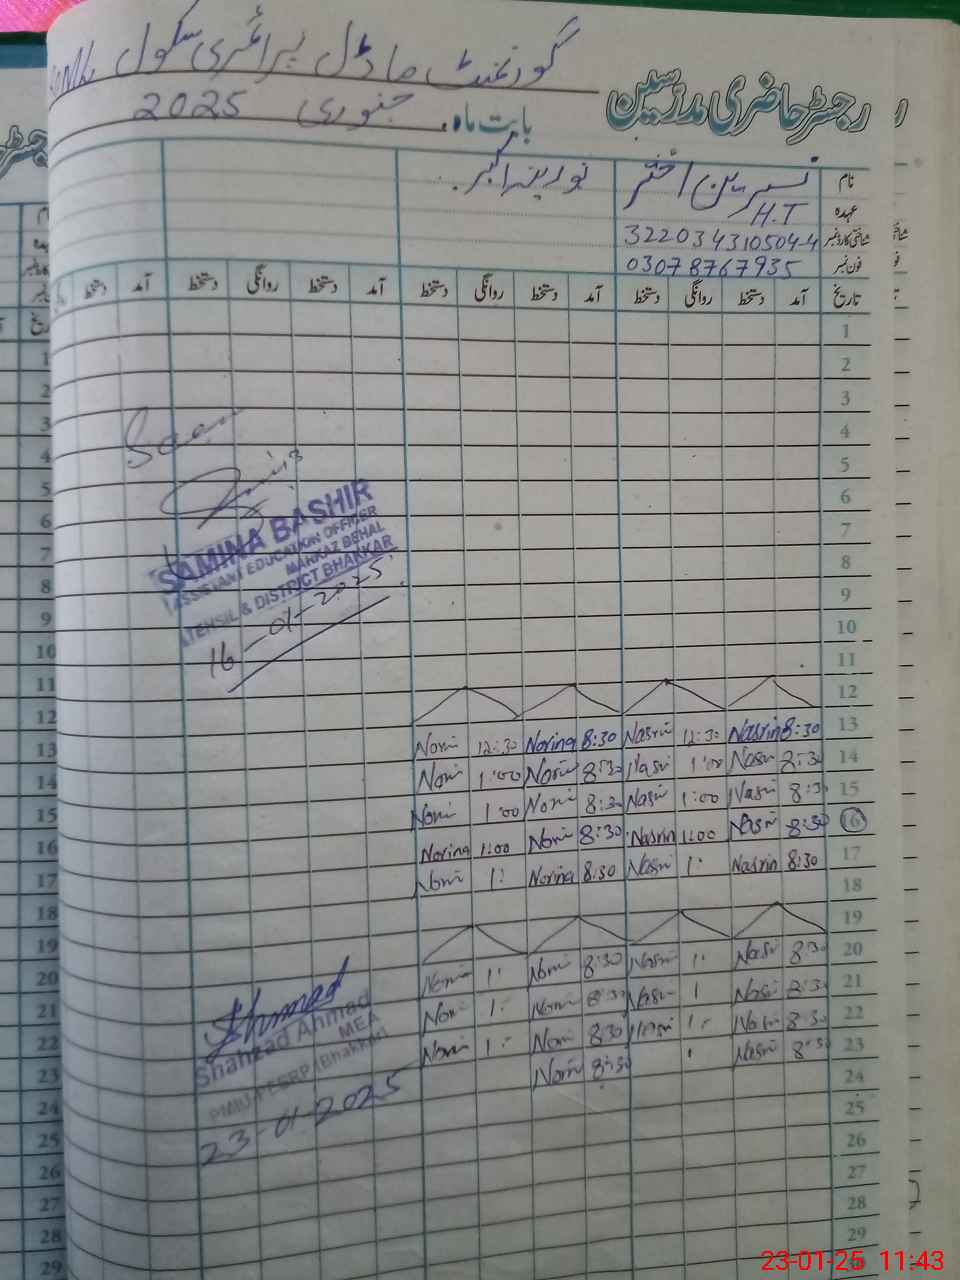 گورنمنٹ ماڈل پرائمری سکول
رجسٹر حاضری مدرسین
بابت ماہ جنوری 2025
نام نسرین اختر نورینہ اکبر
عہدہ H.T
شناختی کارڈ نمبر 322034310504-4
فون نمبر 03078767935
تاریخ آمد دستخط روانگی دستخط آمد دستخط روانگی دستخط آمد دستخط روانگی دستخط آمد دستخط
1
2
3
4
5
6
7
8
9
10
11
12
Nori 12:30 Norina 8:30 Nasrin 12:30 Nasrin 8:30 13
Nori 1:00 Nori 8:30 Nasri 1:00 Nasri 8:30 14
Nori 1:00 Nori 8:30 Nasri 1:00 Nasri 8:30 15
Norina 1:00 Nori 8:30 Nasrin 1:00 Nasri 8:30 16
Nori 1: Norina 8:30 Nasri 1: Nasrin 8:30 17
18
19
Nori 1: Nori 8:30 Nasri 1: Nasri 8:30 20
Nori 1: Nori 8:30 Nasri 1 Nasri 8:30 21
Nori 1: Nori 8:30 Nasri 1: Nasri 8:30 22
Nori 8:30 Nasri 8:30 23
24
25
26
27
28
29
SAMINA BASHIR
ASSISTANT EDUCATION OFFICER
MARKAZ BEHAL
TEHSIL & DISTRICT BHAKKAR
16-01-2025
Ahmad
Shahzad Ahmad
MEA
PMIU-PESRP (Bhakkar)
23-01-2025
1
2
3
4
5
6
7
8
9
10
11
12
13
14
15
16
17
18
19
20
21
22
23
24
25
26
27
28
29
23-01-25 11:43